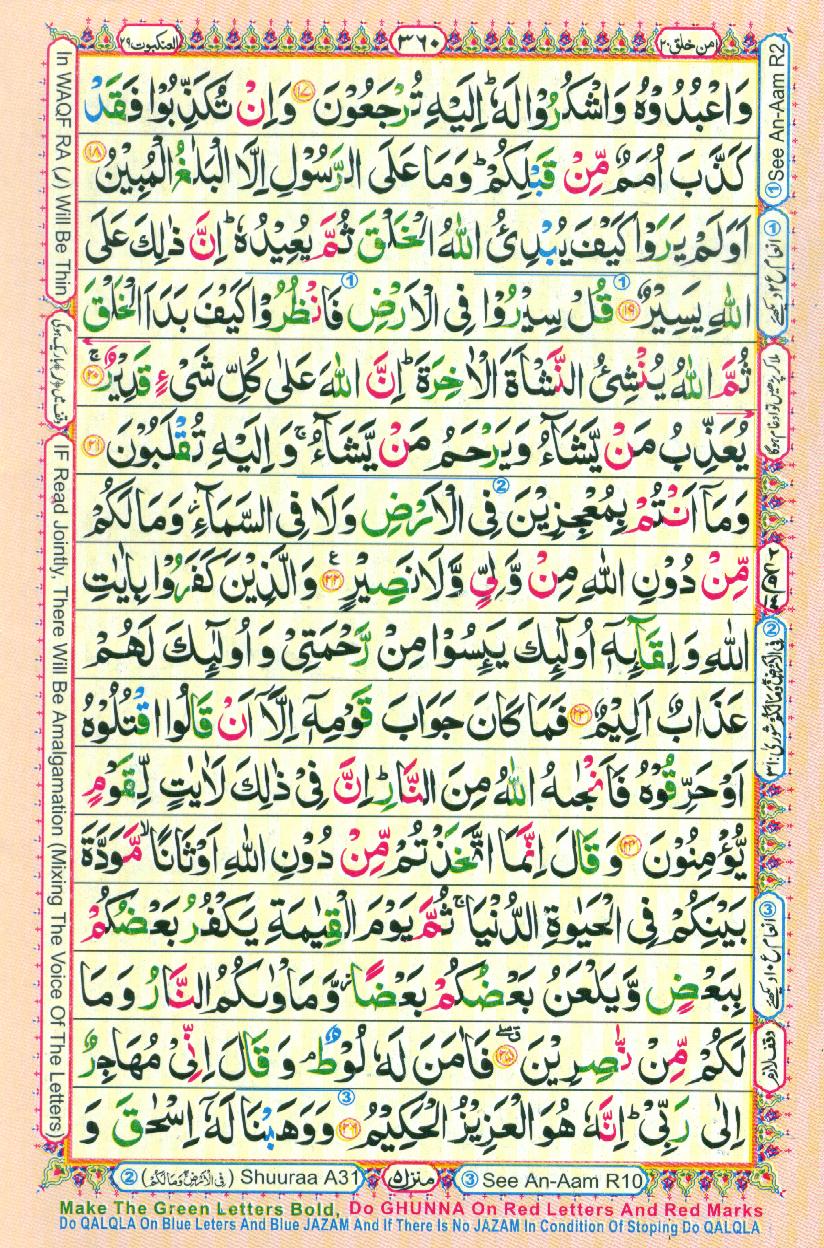 امن خلق ٢٠
٣٦٠
العنكبوت ٢٩
وَاعْبُدُوْهُ وَاشْكُرُوْا لَهٗ ؕ اِلَيْهِ تُرْجَعُوْنَ ﴿۱۷﴾ وَاِنْ تُكَذِّبُوْا فَقَدْ
كَذَّبَ اُمَمٌ مِّنْ قَبْلِكُمْ ؕ وَمَا عَلَى الرَّسُوْلِ اِلَّا الْبَلٰغُ الْمُبِيْنُ ﴿۱۸﴾
اَوَلَمْ يَرَوْا كَيْفَ يُبْدِئُ اللّٰهُ الْخَلْقَ ثُمَّ يُعِيْدُهٗ ؕ اِنَّ ذٰلِكَ عَلَى
اللّٰهِ يَسِيْرٌ ﴿۱۹﴾ قُلْ سِيْرُوْا فِى الْاَرْضِ فَانْظُرُوْا كَيْفَ بَدَاَ الْخَلْقَ
ثُمَّ اللّٰهُ يُنْشِئُ النَّشْاَةَ الْاٰخِرَةَ ؕ اِنَّ اللّٰهَ عَلٰى كُلِّ شَىْءٍ قَدِيْرٌ ۚ ﴿۲۰﴾
يُعَذِّبُ مَنْ يَّشَآءُ وَيَرْحَمُ مَنْ يَّشَآءُ ۚ وَاِلَيْهِ تُقْلَبُوْنَ ﴿۲۱﴾
وَمَاۤ اَنْتُمْ بِمُعْجِزِيْنَ فِى الْاَرْضِ وَلَا فِى السَّمَآءِ ؗ وَمَا لَكُمْ
مِّنْ دُوْنِ اللّٰهِ مِنْ وَّلِىٍّ وَّلَا نَصِيْرٍ ﴿۲۲﴾ ع وَالَّذِيْنَ كَفَرُوْا بِاٰيٰتِ
اللّٰهِ وَلِقَآئِهٖۤ اُولٰٓئِكَ يَئِسُوْا مِنْ رَّحْمَتِىْ وَاُولٰٓئِكَ لَهُمْ
عَذَابٌ اَلِيْمٌ ﴿۲۳﴾ فَمَا كَانَ جَوَابَ قَوْمِهٖۤ اِلَّاۤ اَنْ قَالُوا اقْتُلُوْهُ
اَوْ حَرِّقُوْهُ فَاَنْجٰىهُ اللّٰهُ مِنَ النَّارِ ؕ اِنَّ فِىْ ذٰلِكَ لَاٰيٰتٍ لِّقَوْمٍ
يُّؤْمِنُوْنَ ﴿۲۴﴾ وَقَالَ اِنَّمَا اتَّخَذْتُمْ مِّنْ دُوْنِ اللّٰهِ اَوْثَانًا ۙ مَّوَدَّةَ
بَيْنِكُمْ فِى الْحَيٰوةِ الدُّنْيَا ۚ ثُمَّ يَوْمَ الْقِيٰمَةِ يَكْفُرُ بَعْضُكُمْ
بِبَعْضٍ وَّيَلْعَنُ بَعْضُكُمْ بَعْضًا ؗ وَّمَاْوٰىكُمُ النَّارُ وَمَا
لَكُمْ مِّنْ نّٰصِرِيْنَ ﴿۲۵﴾ فَاٰمَنَ لَهٗ لُوْطٌ ۘ وَقَالَ اِنِّىْ مُهَاجِرٌ
اِلٰى رَبِّىْ ؕ اِنَّهٗ هُوَ الْعَزِيْزُ الْحَكِيْمُ ﴿۲۶﴾ وَوَهَبْنَا لَهٗۤ اِسْحٰقَ وَ
① See An-Aam R2
وقف لازم
In WAQF RA (ر) Will Be Thin
IF Read Jointly, There Will Be Amalgamation (Mixing The Voice Of The Letters)
② (فِى الْاَرْضِ وَمَا لَكُمْ) Shuuraa A31
منزل ٥
③ See An-Aam R10
Make The Green Letters Bold, Do GHUNNA On Red Letters And Red Marks
Do QALQLA On Blue Leters And Blue JAZAM And If There Is No JAZAM In Condition Of Stoping Do QALQLA